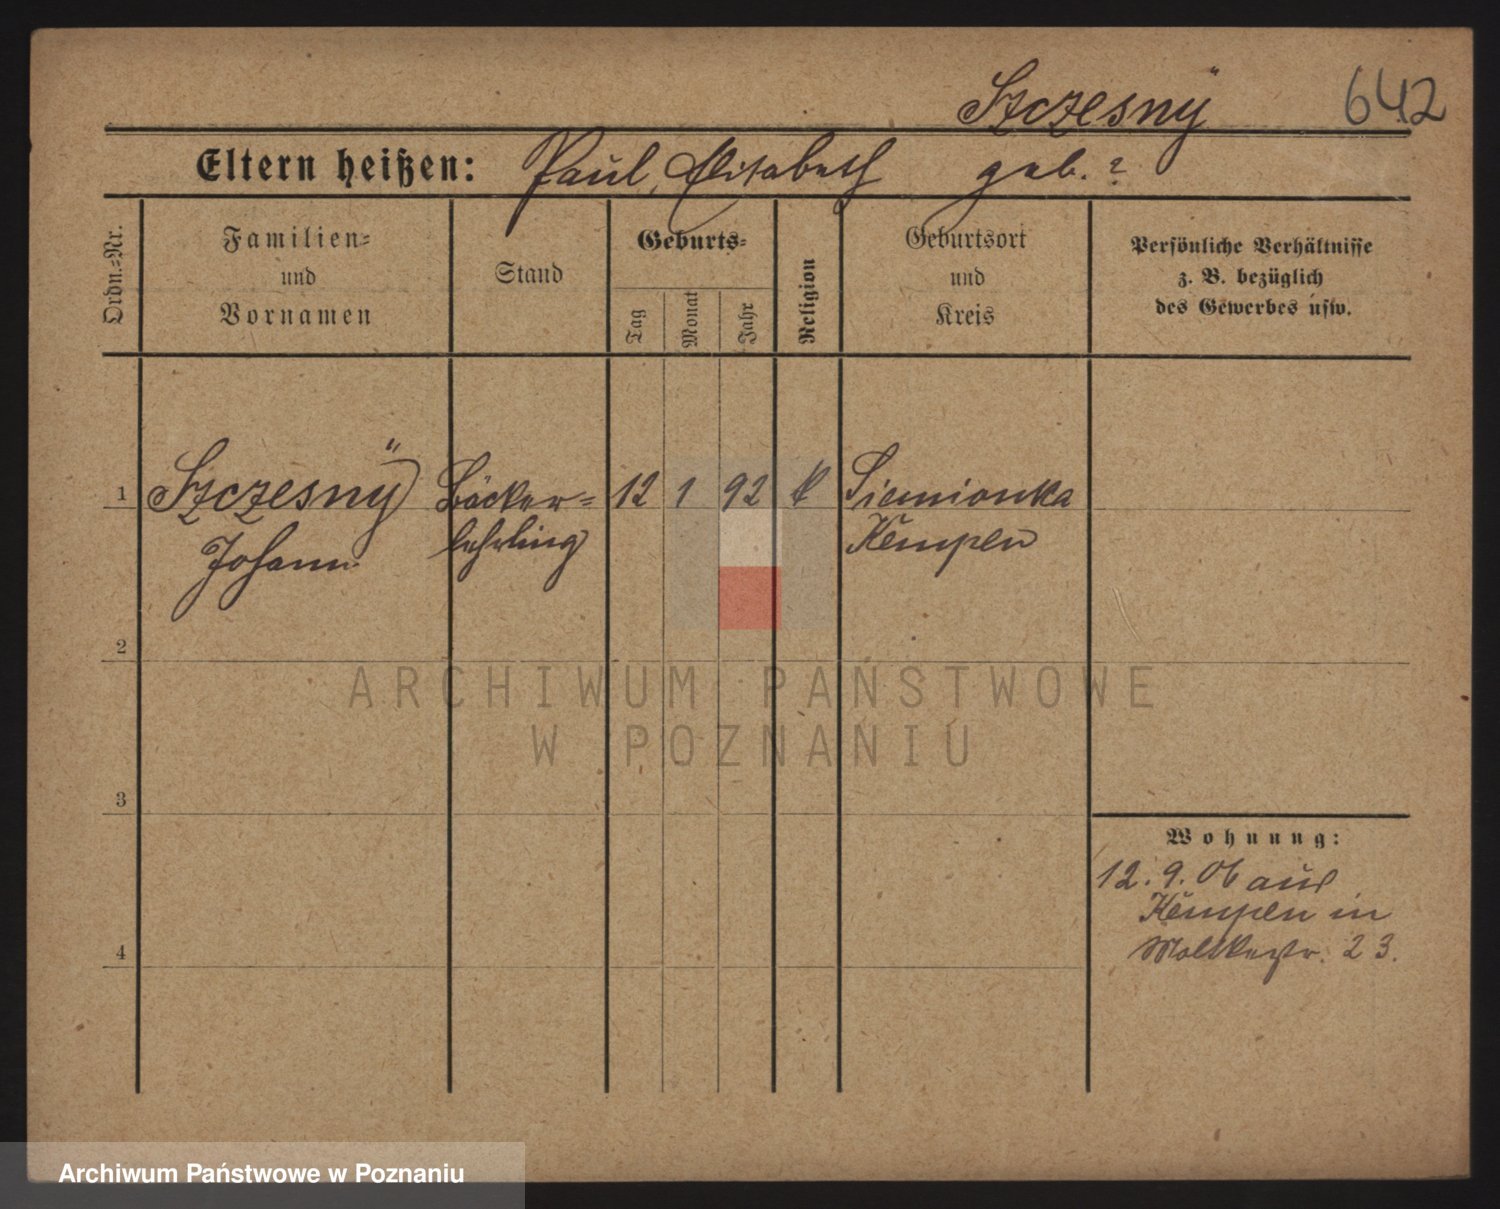 Szczesnÿ
642
Eltern heißen: Paul, Elisabeth geb. ?
Ordn.-Nr.
Familien-
und
Vornamen
Stand
Geburts-
Tag
Monat
Jahr
Religion
Geburtsort
und
Kreis
Persönliche Verhältnisse
z. B. bezüglich
des Gewerbes usw.
1 Szczesnÿ Bäcker= 12 1 92 k Siemionka
Johann lehrling Kempen
2
ARCHIWUM PAŃSTWOWE
W POZNANIU
3
Wohnung:
12. 9. 06 aus
Kempen in
Moltkestr. 23.
4
Archiwum Państwowe w Poznaniu